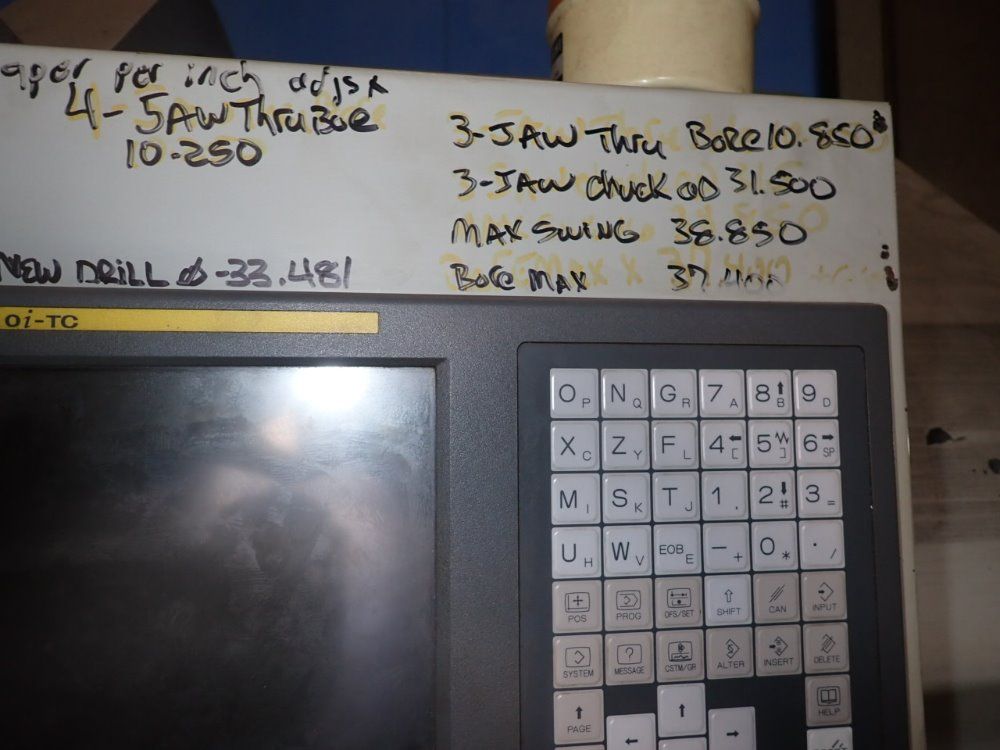 per inch
4-5AW Thru Bore
10.250
3-JAW Thru Bore 10.850
3-JAW chuck OD 31.500
MAX SWING 38.850
NEW DRILL ø -33.481
Bore MAX 37.400
0i-TC
OP NQ GR 7A 8↑B 9D
XC ZY FL 4←[ 5] 6→SP
MI SK TJ 1, 2↓# 3=
UH WV EOBE -+ 0* ./
POS PROG OFS/SET SHIFT CAN INPUT
SYSTEM MESSAGE CSTM/GR ALTER INSERT DELETE
↑ PAGE ↑ HELP
← →